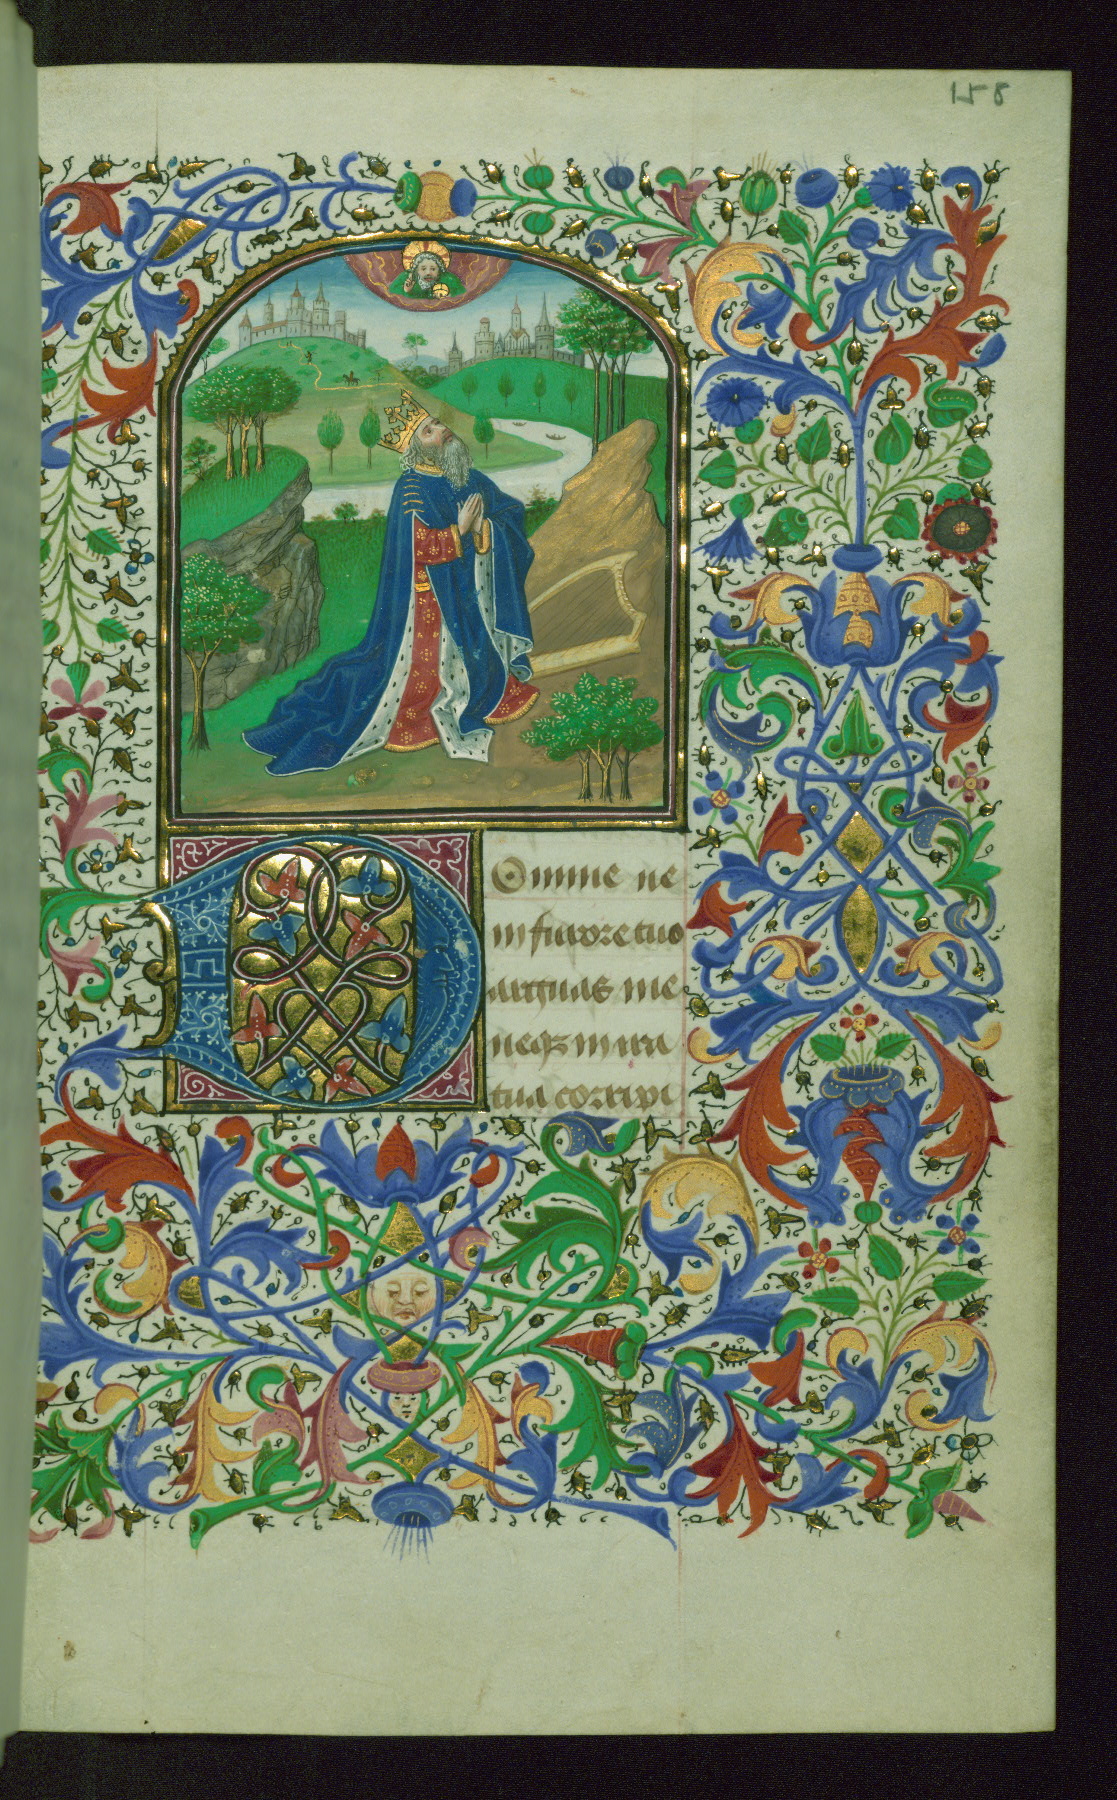 158
Domine ne
in furore tuo
arguas me
neq3 in ira
tua corripi